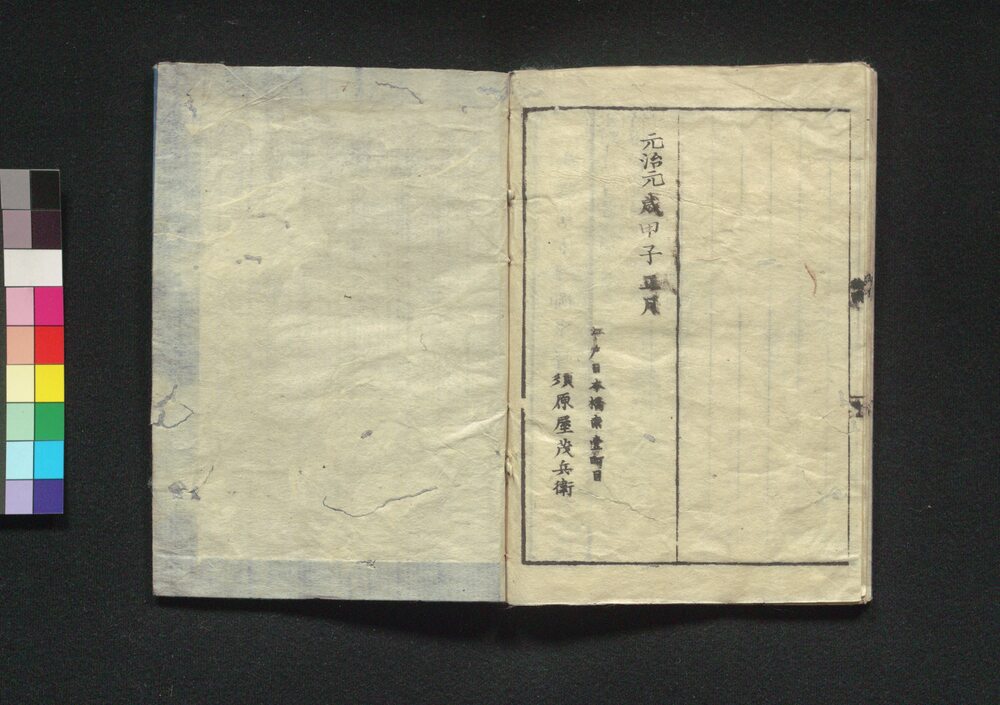 元治元歳甲子正月
江戸日本橋南壹町目
須原屋茂兵衛